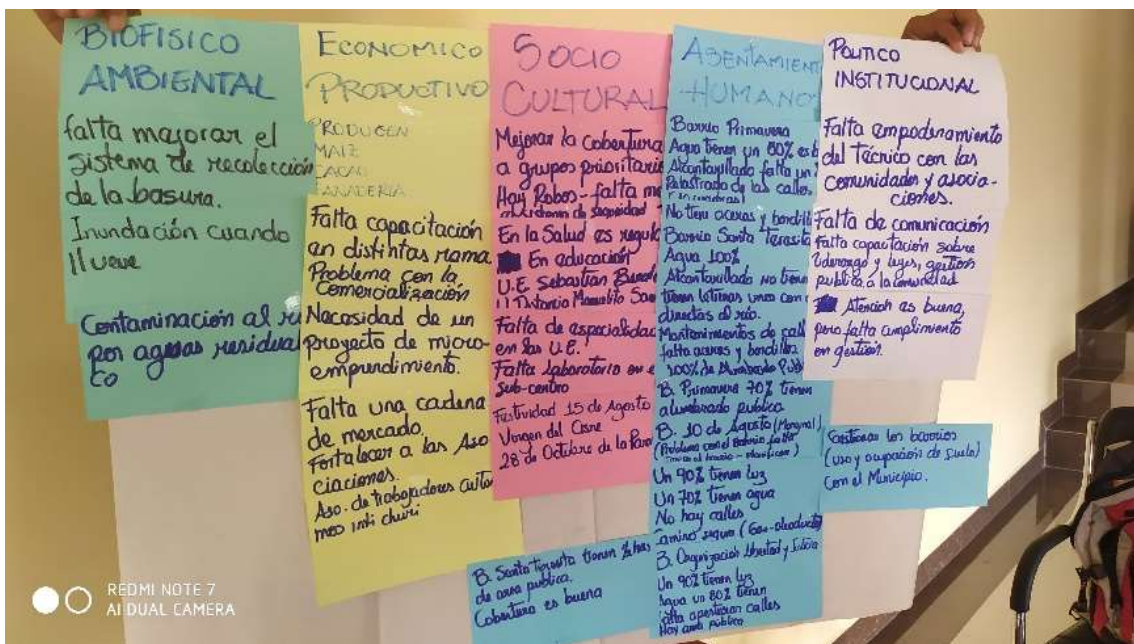 BIOFISICO
AMBIENTAL
falta majorar el
sistema de recolección
de la basura.
Inundación cuando
llueve
Contaminación al
por aguas residual
ECONOMICO
PRODUCTIVO
PRODUCEN
MAIZ
CACAO
GANADERÍA
Falta capacitación
en distintas rama
Problema con la
Comercialización
Necesidad de un
proyecto de micro-
emprendimiento.
Falta una cadena
de mercado.
Fortalecer a las Aso
ciaciones.
Aso. de trabajadores
mos inti churi
SOCIO
CULTURAL
Mejorar la cobertura
a grupos prioritario
Hay Robos - falta
de seguridad
En la Salud es regul
En educación
U.E Sebastian
Manuelito
Falta de especialidad
en las U.E.
Falta Laboratorio en e
Sub-centro
Festividad 15 de Agosto
Virgen del Cisne
28 de Octubre de la Parr
ASENTAMIENT
HUMANO
Barrio Primavera
Agua tienen un 80%
Alcantarillado falta un
Relastrado de las calles
No tiene aceras y bordill
Barrio Santa Teresita
Agua 100%
Alcantarillado no tiene
tienen letrinas unos con
directas al río.
Mantenimientos de call
falta aceras y bordillos
100% de Alumbrado Pub
B. Primavera 70% tienen
alumbrado publico
B. 10 de Agosto (Marginal)
(Problema con el Barrio falta
Un 90% tienen luz
Un 70% tienen agua
No hay calles
Camino seguro (Gas-oleoducto)
B. Organización Libertad y Justicia
Un 90% tienen luz
Agua un 80% tienen
falta apertura calles
Hay area publica
B. Santa Teresita tienen
de area publica.
Cobertura es buena
POLITICO
INSTITUCIONAL
Falta empoderamiento
del Técnico con las
Comunidades y asocia-
ciones.
Falta de comunicación
Falta capacitación sobre
liderazgo y leyes, gestión
publica, a la comunidad
Atención es buena,
pero falta cumplimiento
en gestión.
Gestionar los barrios
(uso y ocupación de suelo)
con el Municipio.
REDMI NOTE 7
AI DUAL CAMERA